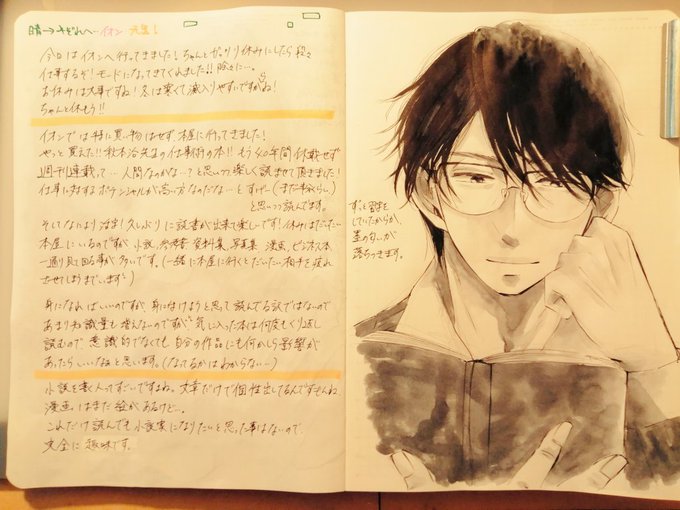 晴→みぞれへ… イオン 元気!
今日はイオンへ行ってきました!ちゃんとがっつり休みにしたら段々
仕事するぞ!モードになってきてくれました!!除々に…。
お休みは大事ですね!冬は寒くて滅入りやすいですがね!
ちゃんと休もう!!
イオンでは特に買い物はせず本屋に行ってきました!
やっと買えた!!秋本治先生の仕事術の本!!もう40年間休載せず
週刊連載って…人間なのかな…?と思いつつ楽しく読ませて頂きました!
仕事に対するポテンシャルが高い方なのだな…とすげー(まだ半分くらい)
と思いつつ読んでます。
そしてなにより治生!久しぶりに読書が出来て楽しいです!休みはだいたい
本屋にいるのですが小説、参考書、資料集、写真集、漫画、ビジネス本
一通り見て回る事が多いです。(一緒に本屋に行くとだいたい相手を疲れ
させてしまうでいます)
身になればいいのですが、身に付けようと思って読んでる訳ではないので
あまり知識量も増えないのですが気に入った本は何度もくり返し
読むので、意識的でなくても自分の作品にも何かしら影響が
あったらいいなぁと思います。(なってるかはわからない…)
小説を書く人ってすごいですよね。文章だけで個性出してるんですもんね
漫画はまだ絵があるけど…。
これだけ読んでも小説家になりたいと思った事はないので、
完全に趣味です。
ずっと習字を
していたからか、
墨の匂いが
落ちつきます。